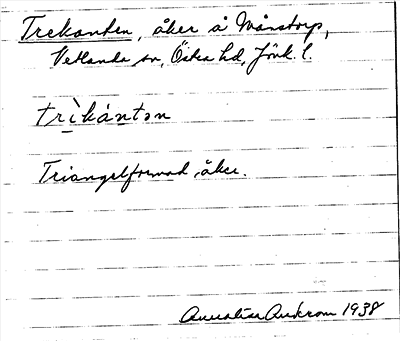 Trekanten, åker å Månstorp,
Vetlanda sn, Östra hd, Jönk. l.
trìkántən
Triangelformad åker.
Annalisa 1938